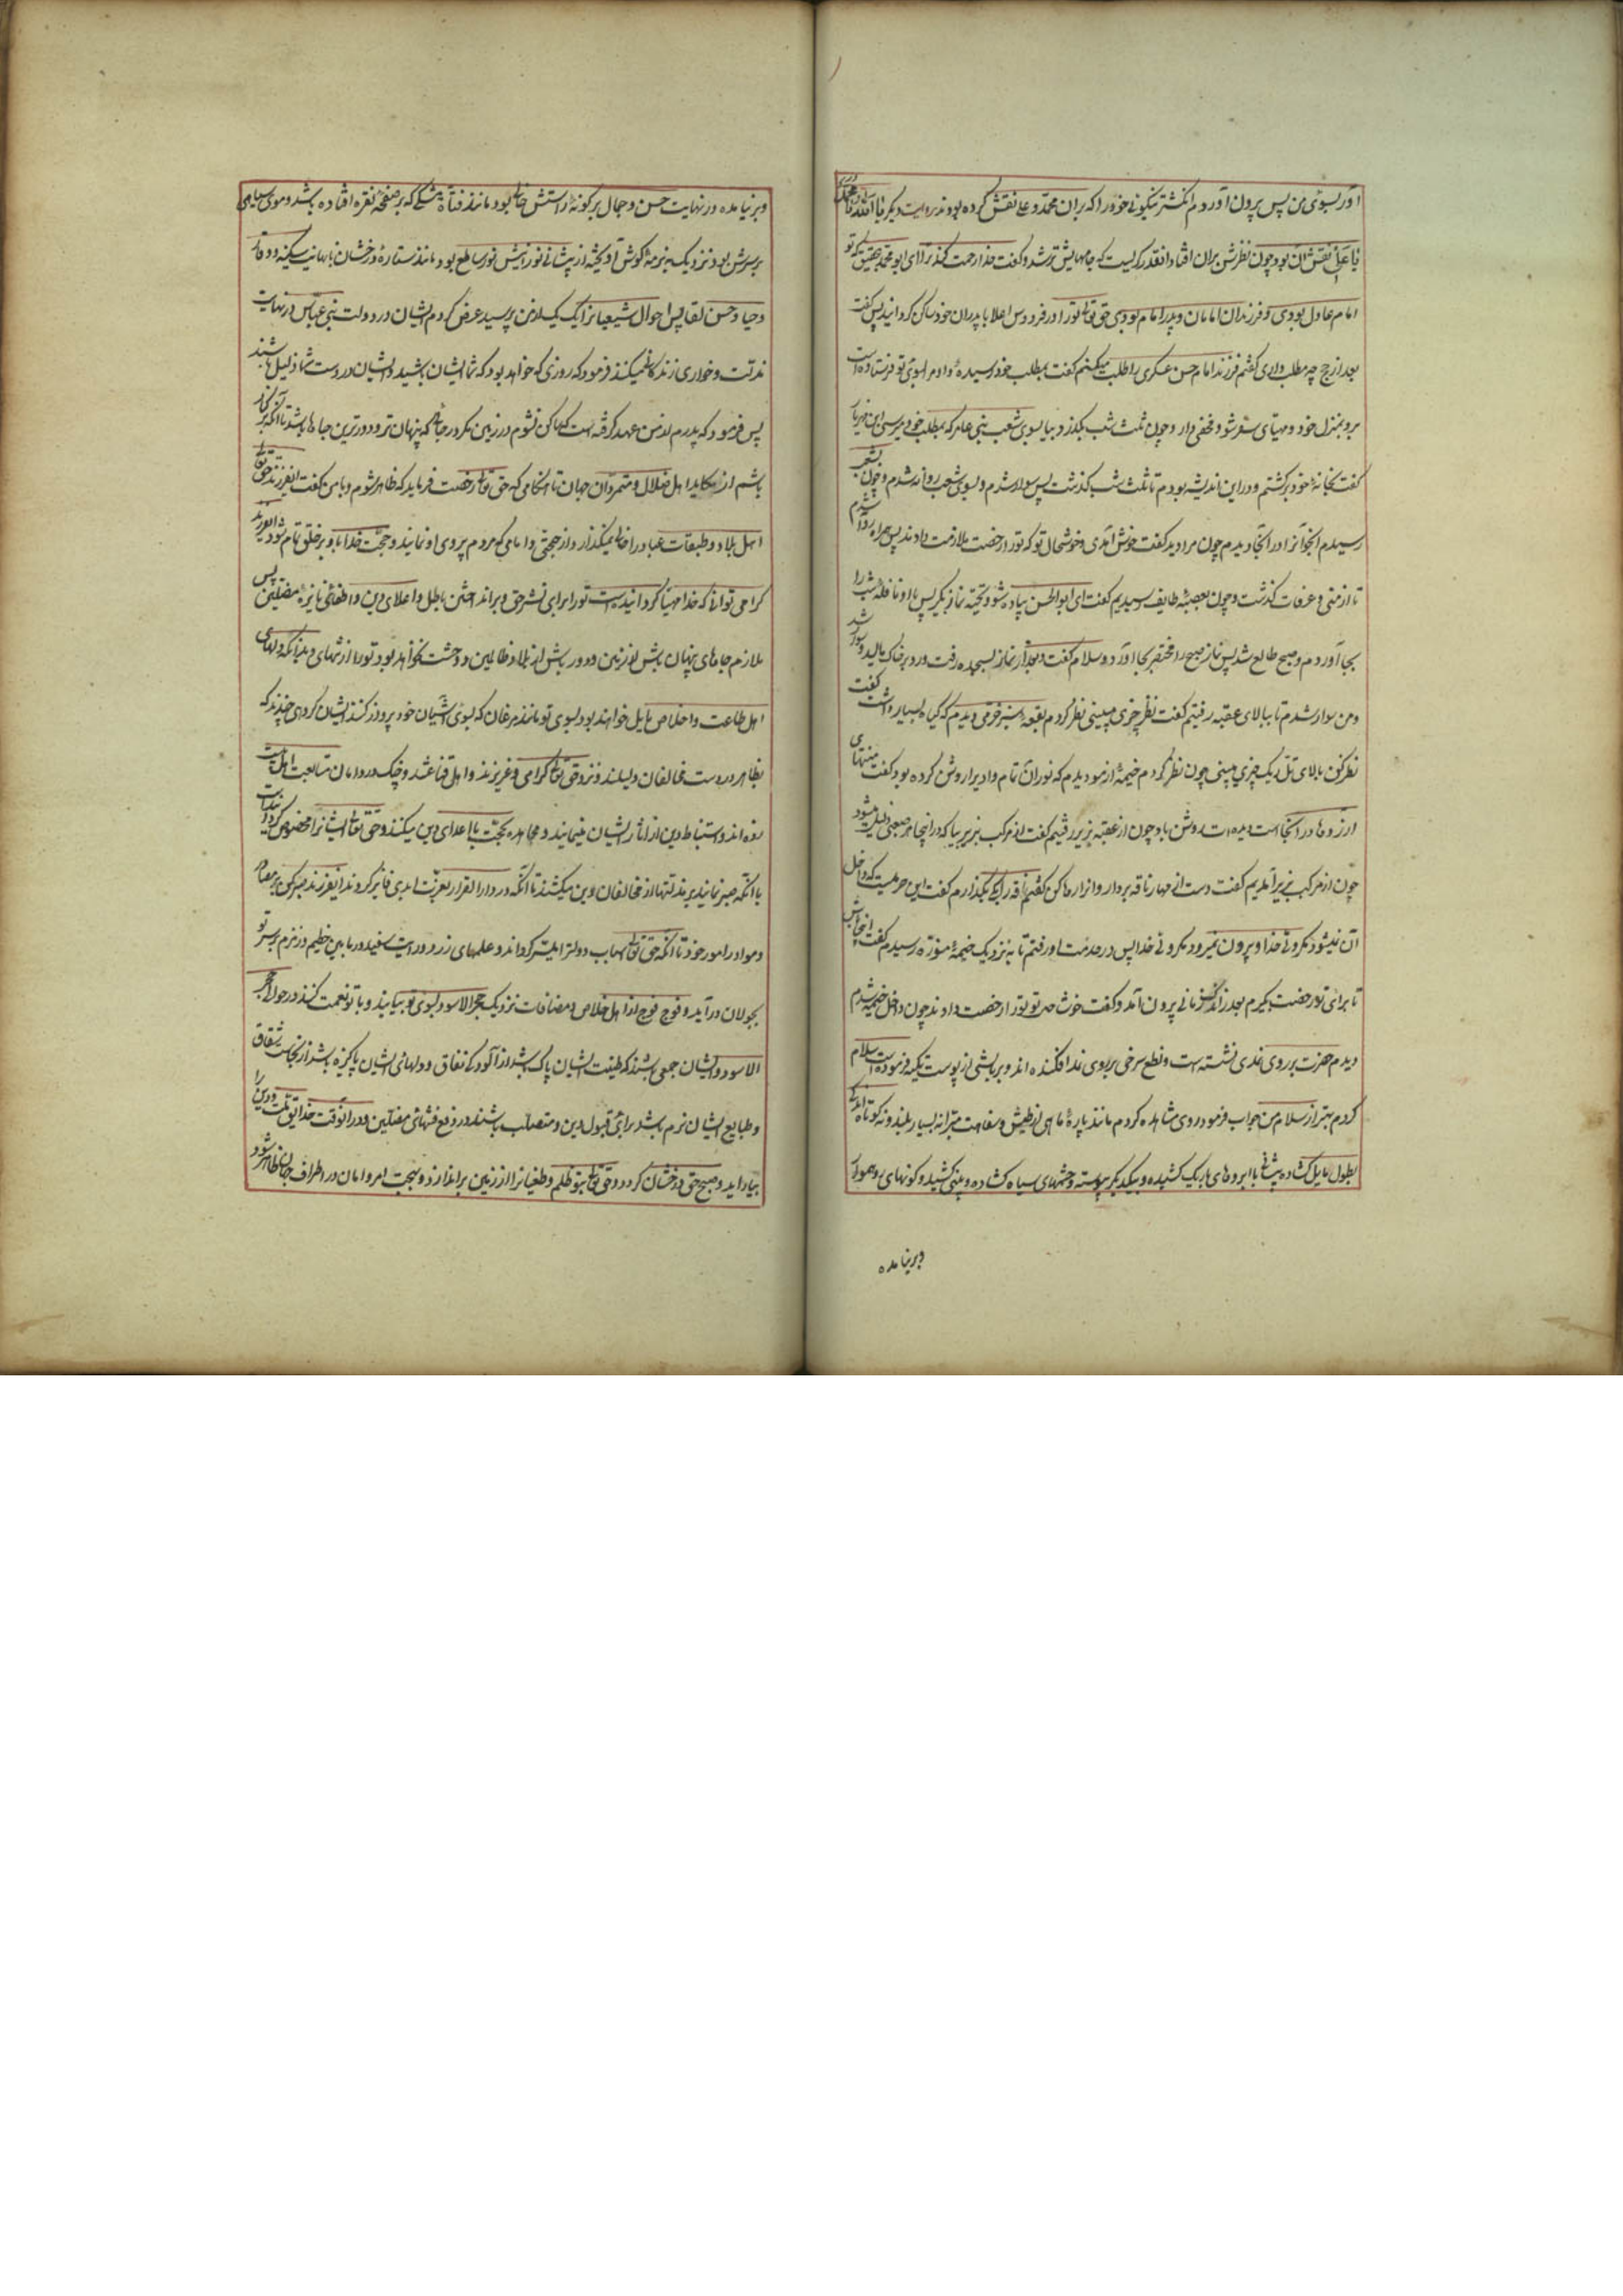 آور بسوی من پس بیرون آوردم انگشتر نیکوئی خود را که بران محمد و علی نقش کرده بودند و بروایت دیگر یا الله یا محمد
یا علی نقش آن بود چون نظرش بران افتاد انقدر گریست که جامهایش تر شد و گفت خدا رحمت کند ترا ای ابو محمد بتحقیق که تو
امام عادل بودی و فرزند امامان و پدر امام بودی حق تعالی تو را در فردوس اعلا با پدران خود ساکن گردانید پس گفت
بعد از حج چه مطلب داری گفتم فرزند امام حسن عسکری را طلب میکنم گفت بمطلب خود رسیدهٔ و او مرا بسوی تو فرستاده است
برو بمنزل خود و مهیای سفر شو و مخفی دار و چون ثلث شب بگذرد بیا بسوی شعب بنی عامر که بمطلب خود میرسی ابن مهزیار
گفت بخانهٔ خود برگشتم و در این اندیشه بودم تا ثلث شب گذشت پس سوار شدم و بسوی شعب روانه شدم و چون بشعب
رسیدم آنجوانرا در آنجا دیدم چون مرا دید گفت خوش آمدی و خوشحال تو که تو را رخصت ملازمت دادند پس همراه او روانه شدم
تا از منی و عرفات گذشت و چون بعقبهٔ طایف رسیدیم گفت ای ابو الحسن پیاده شو و تهیهٔ نماز بگیر پس با او نافلهٔ شب را
بجا آوردم و صبح طالع شد پس نماز صبح را مختصر بجا آورد و سلام گفت و بعد از نماز بسجده رفت و رو بر خاک مالید و سوار شد
و من سوار شدم تا ببالای عقبه رفتیم گفت نظر کن چیزی میبینی نظر کردم بقعهٔ سبز خرمی دیدم که گیاه بسیار داشت گفت
نظر کن بالای تل ریک چیزی میبینی چون نظر کردم خیمهٔ از مو دیدم که نور آن تمام وادیرا روشن کرده بود گفت منتهای
آرزوها در آنجا است دیده ات روشن باد چون از عقبه بزیر رفتیم گفت از مرکب بزیر بیا که در اینجا هر صعبی ذلیل میشود
چون از مرکب بزیر آمدیم گفت دست از مهار ناقه بردار و آنرا رها کن گفتم ناقه را بکی بگذارم گفت این حرمیست که داخل
آن نمیشود مگر ولی خدا و بیرون نمیرود مگر ولی خدا پس در خدمت او رفتم تا به نزدیک خیمهٔ منوره رسیدم گفت اینجا باش
تا برای تو رخصت بگیرم بعد از اندک زمانی بیرون آمد و گفت خوشا حال تو تو را رخصت دادند چون داخل خیمه شدم
دیدم حضرت بر روی نمدی نشسته است و نطع سرخی بر روی نمد افکنده اند و بر بالشی از پوست تکیه فرموده است سلام
کردم بهتر از سلام من جواب فرمود روی مشاهده کردم مانند پارهٔ ماه از طیش و سفاهت مبرا نه بسیار بلند و نه کوتاه اندکی
بطول مایل گشاده پیشانی با ابروهای باریک کشیده و بیکدیگر پیوسته و چشمهای سیاه گشاده و بینی کشیده و گونهای رو هموار
و برنیامده
و برنیامده در نهایت حسن و جمال بر گونهٔ راستش خالی بود مانند فتاة مشکی که بر صفحهٔ نقره افتاده باشد و موی سیاهی
بر سرش بود نزدیک به نرمهٔ گوش آویخته از پیشانی نورانیش نور ساطع بود مانند ستارهٔ درخشان با نهایت سکینه و وقار
و حیا و حسن لقا پس احوال شیعیانرا یک یک از من پرسید عرض کردم ایشان در دولت بنی عباس در نهایت
مذلت و خواری زندگانی میکنند فرمود که روزی خواهد بود که شما مالک ایشان باشید و ایشان در دست شما ذلیل باشند
پس فرمود که پدرم از من عهد گرفته است که ساکن نشوم در زمین مگر در جائی که پنهان تر و دورترین جاها باشد تا آنکه بر کنار
باشم از مکاید اهل ضلال و متمردان جهان تا هنگامی که حق تعالی رخصت فرماید که ظاهر شوم و با من گفت ای فرزند حق تعالی
اهل بلاد و طبقات عباد را خالی نمیگذارد از حجتی و امامی که مردم پیروی او نمایند و حجت خدا باو بر خلق تمام شود ای فرزند
گرامی تو آنی که خدا مهیا گردانیده است تو را برای نشر حق و برانداختن باطل و اعلای دین و اطفای نایرهٔ مضلین پس
ملازم جاهای پنهان باش از زمین و دور باش از بلاد ظالمین و وحشت نخواهد بود تو را از تنهائی و بدانکه دلهای
اهل طاعت و اخلاص مایل خواهند بود بسوی تو مانند مرغان که بسوی آشیان خود پرواز کنند و ایشان گروهی چندند که
بظاهر در دست مخالفان ذلیلند و نزد حق تعالی گرامی و عزیزند و اهل قناعتند و چنگ در دامان متابعت اهل بیت
زده اند و استنباط دین از آثار ایشان مینمایند و مجاهده بحجت با اعدای دین میکنند و حق تعالی ایشانرا مخصوص گردانیده است
با آنکه صبر نمایند بر مذلتها از مخالفان دین میکشند تا آنکه در دار القرار بعزت ابدی فایز گردند ای فرزند صبر کن بر مصادر
و موارد امور خود تا آنکه حق تعالی اسباب دولت را میسر گرداند و علمهای زرد و رایت سفید در مابین حطیم و زمزم بر سر تو
بجولان درآید و فوج فوج از اهل اخلاص و مصافات نزدیک حجر الاسود بسوی تو بیایند و با تو بیعت کنند در حوالی حجر
الاسود و ایشان جمعی باشند که طینت ایشان پاک باشد از آلودگی نفاق و دلهای ایشان پاکیزه باشد از نجاست شقاق
و طبایع ایشان نرم باشد برای قبول دین و متصلب باشند در دفع فتنهای مضلین و در آنوقت حدایق ملت و دین را
ببار آید و صبح حق درخشان گردد و حق تعالی بتو ظلم و طغیانرا از زمین براندازد و بهجت امن و امان در اطراف جهان ظاهر شود